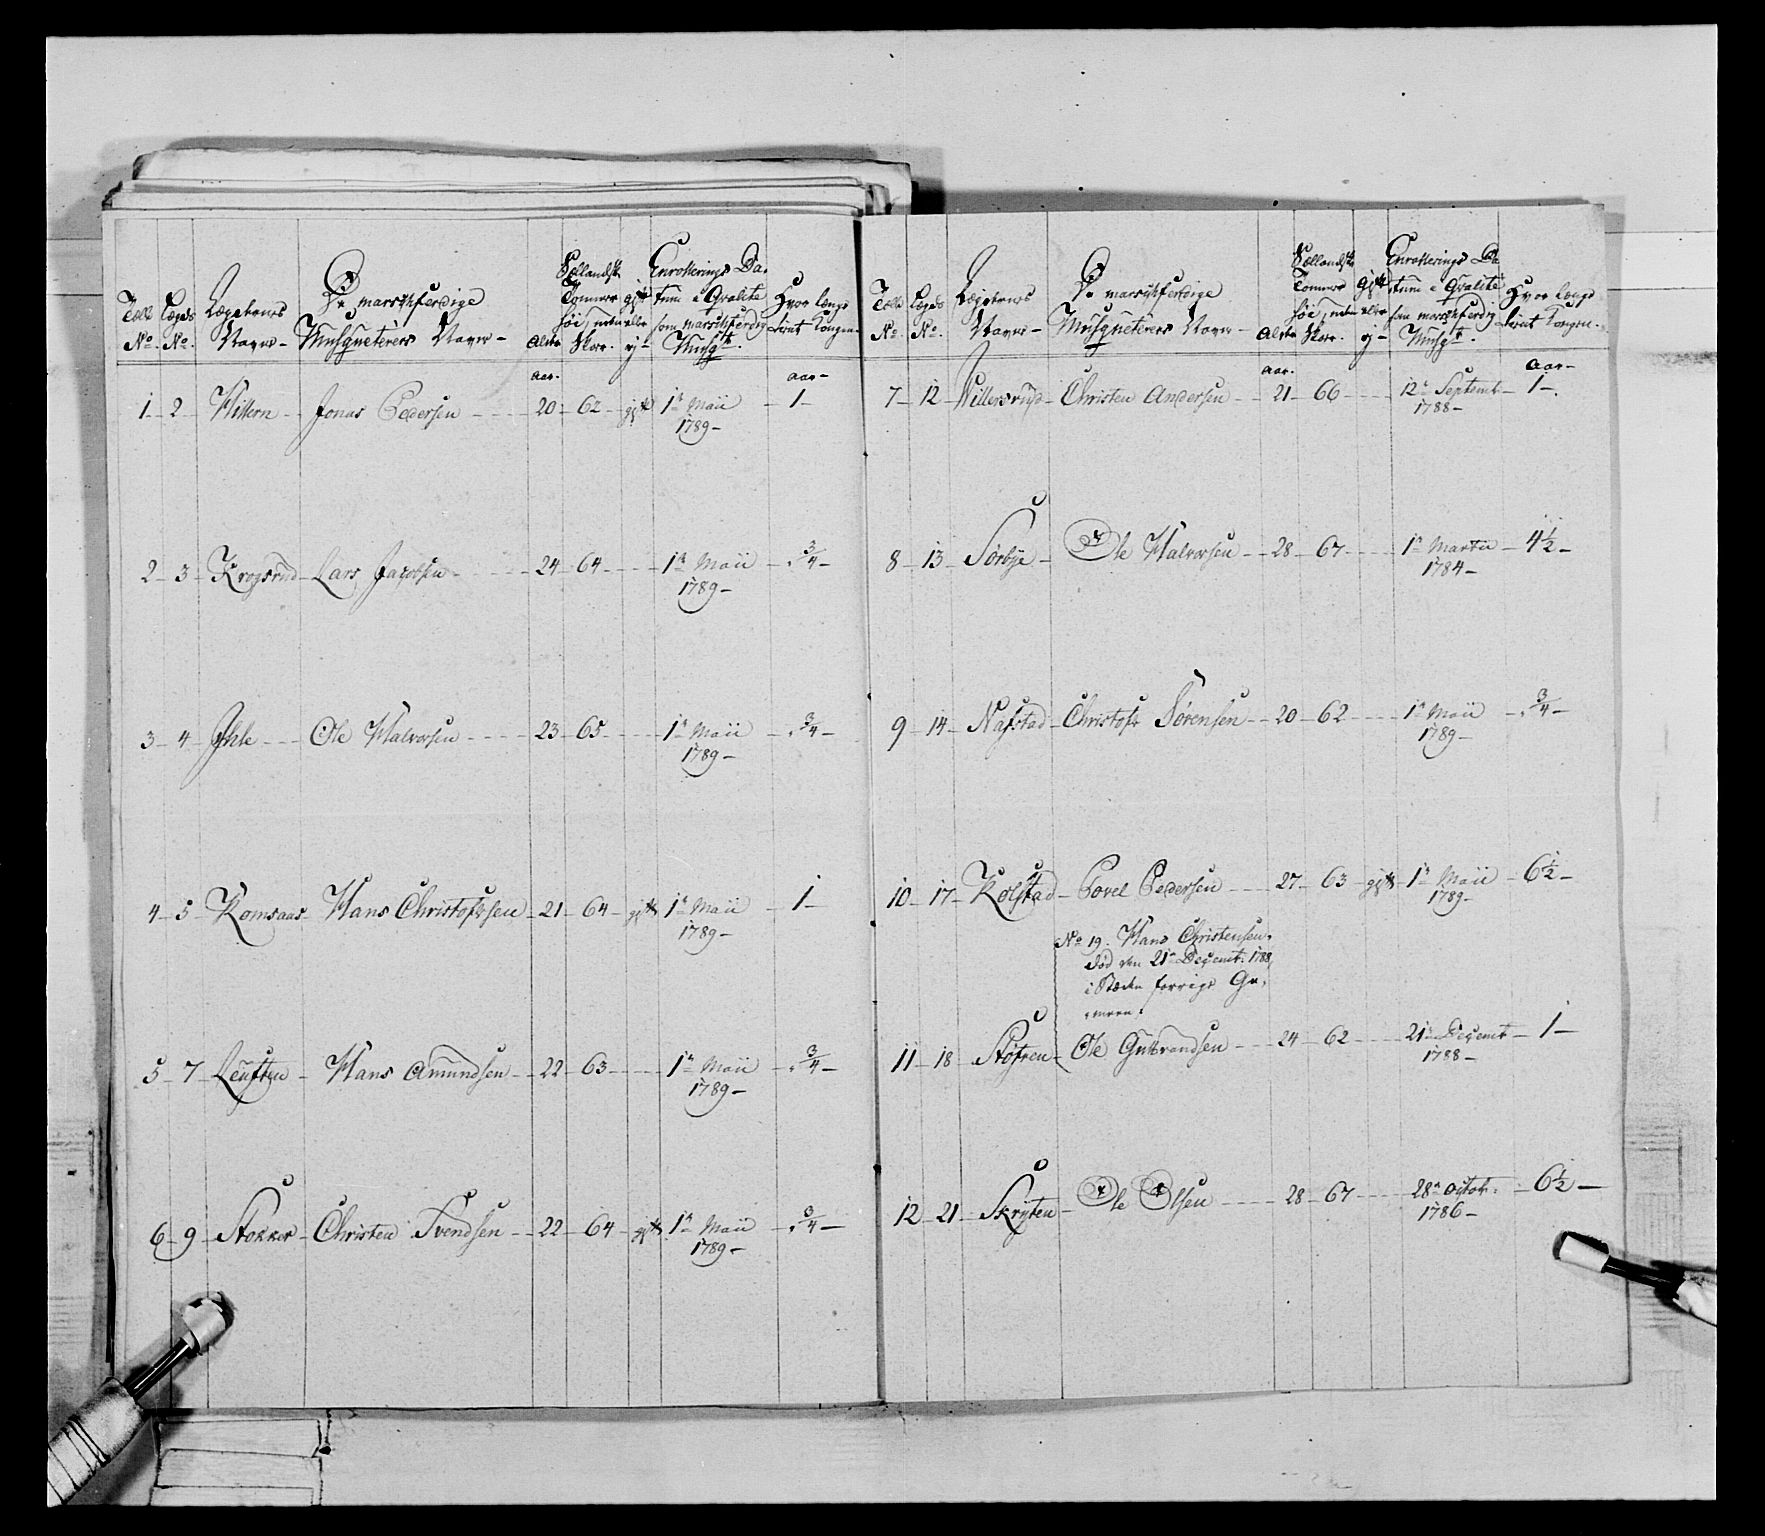 Tall No.
Lægds No.
Lægdernes Navne -
De marschferdige Musqueterers Navne -
Alder
Sællandske Tommer høi, uden Skoe.
gift eller ej -
Enrollerings Datum i Qvalité som marschferdig Musqt.
Hvor længe tient Kongen -
aar.
aar -
1 - 2 - Jonas Pedersen - 20 - 62 - gift 1te Maii - 1 -
1789 -
2 - 3 - Krogsrud - Lars Jacobsen - 24 - 64 - 1te Maii - 3/4 -
1789 -
3 - 4 - Ihle - Ole Halvorsen - 23 - 65 - 1te Maii - 3/4 -
1789 -
4 - 5 - Komsaas - Hans Christophersen - 21 - 64 - gift 1te Maii - 1 -
1789 -
5 - 7 - Hans Amundsen - 22 - 63 - 1te Maii - 3/4 -
1789 -
6 - 9 - Stokker - Christen Svendsen - 22 - 64 - gift 1te Maii - 3/4 -
1789 -
Tall No.
Lægds No.
Lægdernes Navne -
De marschferdige Musqueterers Navne -
Alder
Sællandske Tommer høi, uden Skoe.
gift eller ej -
Enrollerings Datum i Qvalité som marschferdig Musqt.
Hvor længe tient Kongen -
aar.
aar -
7 - 12 - Willersrud - Christen Andersen - 21 - 66 - 12te Septembr - 1 -
1788 -
8 - 13 - Sørbye - Ole Halvorsen - 28 - 67 - 1te Martii - 4 1/2 -
1784 -
9 - 14 - Nafstad - Christofr Sørensen - 20 - 62 - 1te Maii - 3/4 -
1789 -
10 - 17 - Kolstad - Povel Pedersen - 27 - 63 - gift - 1te Maii - 6 1/2 -
1789 -
No 19. Hans Christensen,
død den 21te Decembr: 1788,
i Stæden forrige
11 - 18 - Ole Gulbrandsen - 24 - 62 - 21te Decembr - 1 -
1788 -
12 - 21 - Skryten - Ole Olsen - 28 - 67 - 28te octobr: - 6 1/2 -
1786 -